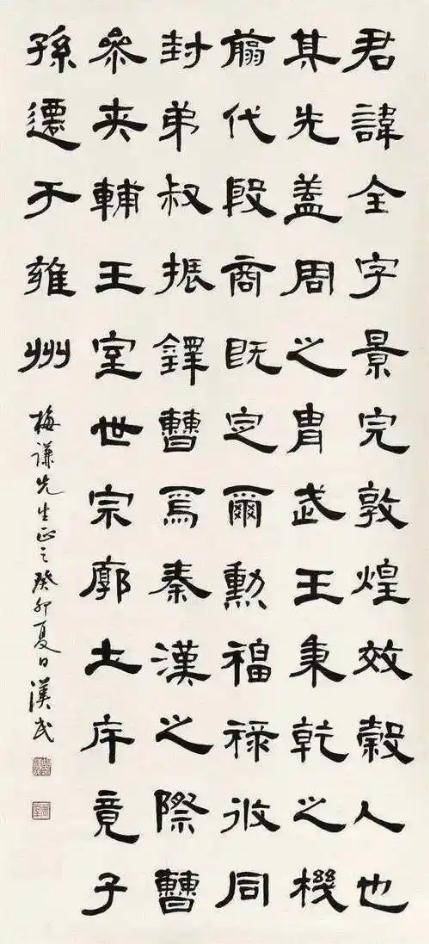 君諱全字景完敦煌效穀人也
其先蓋周之胄武王秉乾之機
翦伐殷商既定爾勳福祿攸同
封弟叔振鐸曹焉秦漢之際曹
參夾輔王室世宗廓土斥竟子
孫遷于雍州
梅謙先生正之癸卯夏日漢民